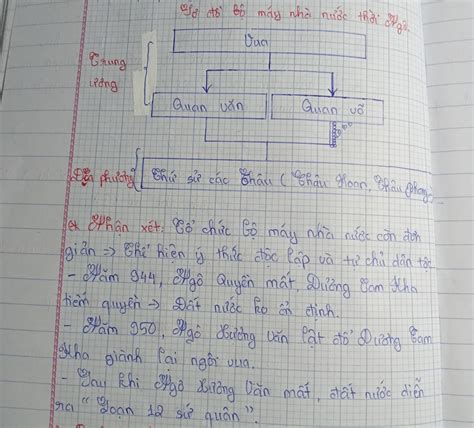 Sơ đồ bộ máy nhà nước thời Ngô.
Vua
Trung
ương
Quan văn
Quan võ
Địa phương
Thứ sử các Châu (Châu Hoan, Châu Phong...
* Nhận xét: Tổ chức bộ máy nhà nước còn đơn
giản => Thể hiện ý thức độc lập và tự chủ dân tộc
- Năm 944, Ngô Quyền mất, Dương Tam Kha
tiếm quyền -> Đất nước ko ổn định.
- Năm 950, Ngô Xương Văn lật đổ Dương Tam
Kha giành lại ngôi vua.
- Sau khi Ngô Xương Văn mất, đất nước diễn
ra "Loạn 12 sứ quân".